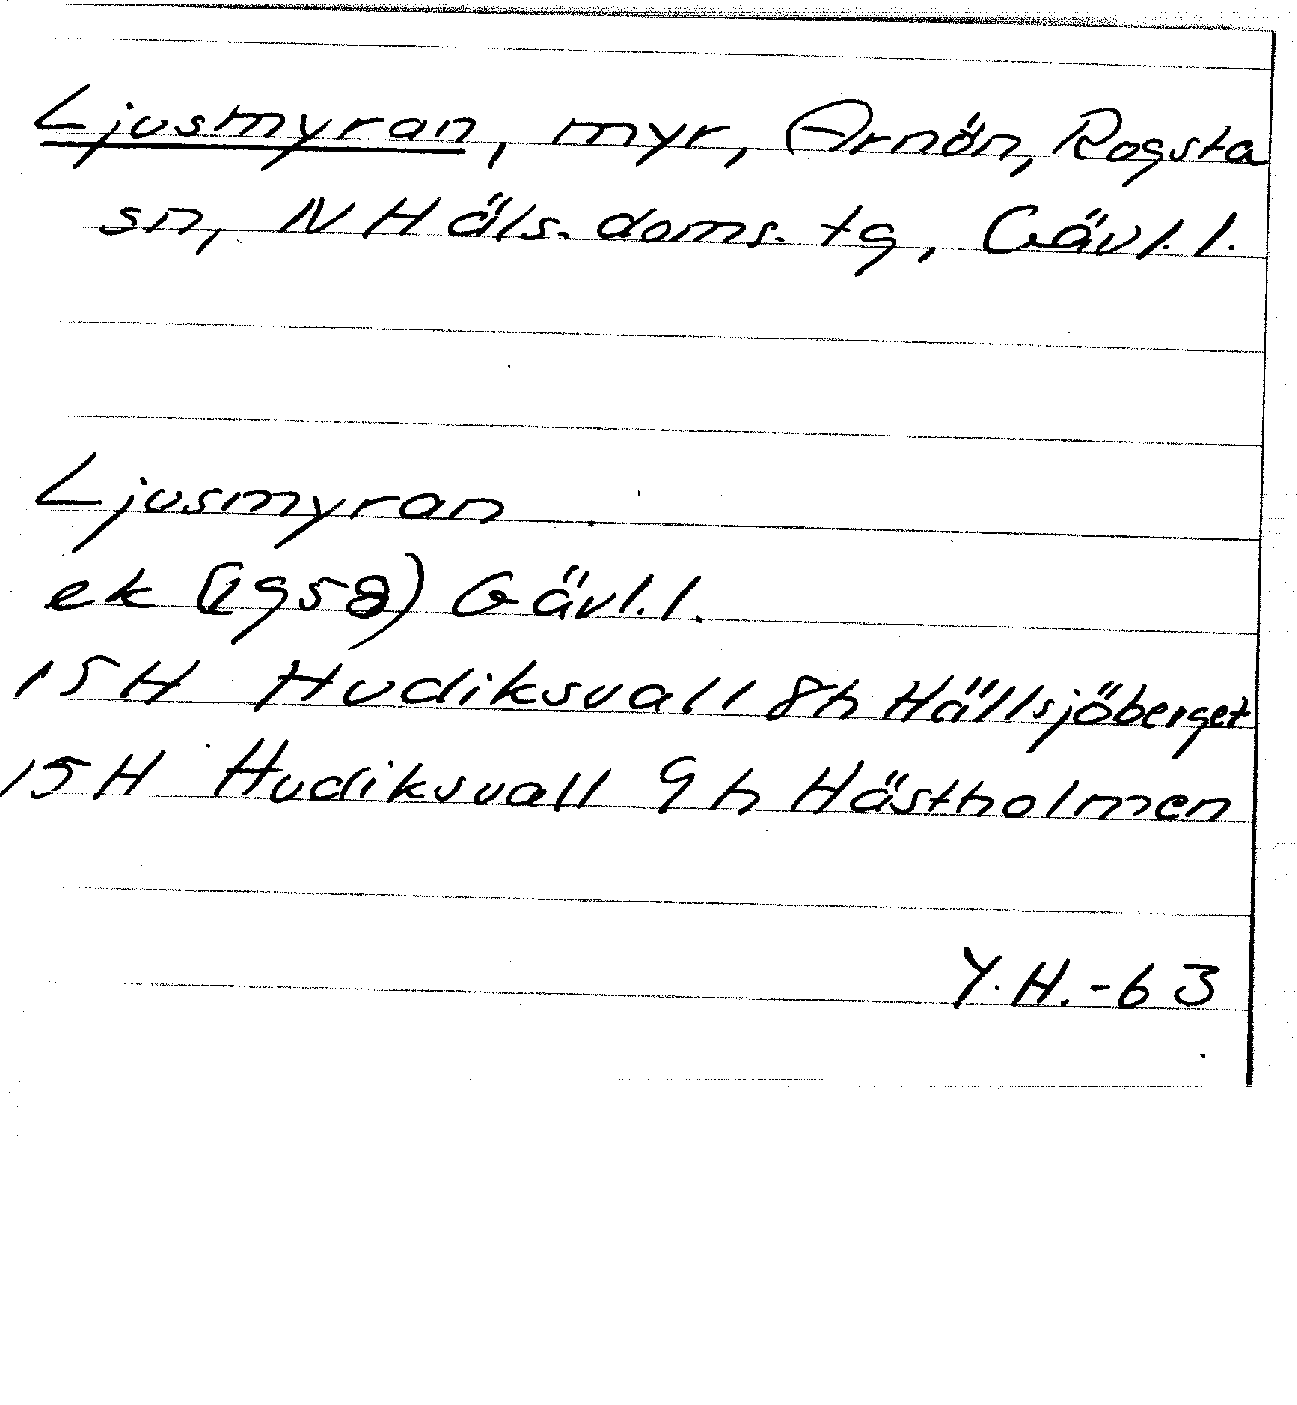 Ljusmyran, myr, Arnön, Rogsta
sn, N Häls. doms. tg, Gävl. l.
Ljusmyran
ek (1958) Gävl. l.
15H Hudiksvall 8h Hällsjöberget
15H Hudiksvall 9h Hästholmen
Y.H.-63